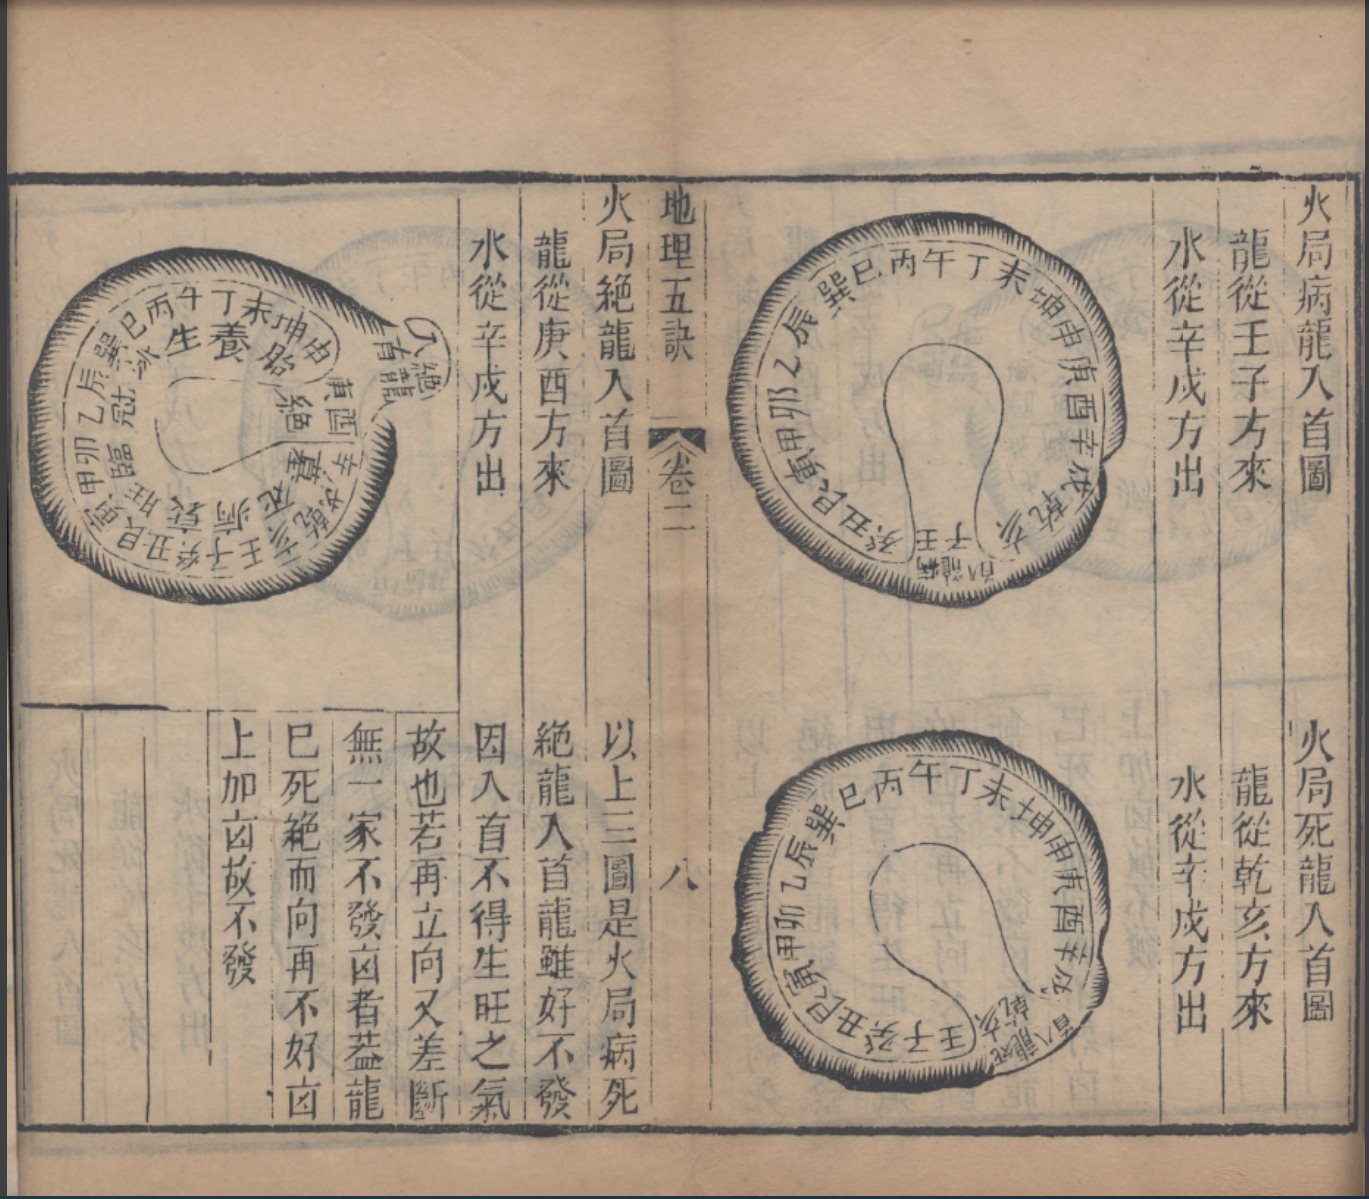 火局病龍入首圖
龍從壬子方來
水從辛戍方出
壬子癸丑艮寅甲卯乙辰巽巳丙午丁未坤申庚酉辛戍乾亥
病龍入首
火局死龍入首圖
龍從乾亥方來
水從辛戍方出
壬子癸丑艮寅甲卯乙辰巽巳丙午丁未坤申庚酉辛戍乾亥
死龍入首
地理五訣
卷二
八
火局絶龍入首圖
龍從庚酉方來
水從辛戍方出
壬子癸丑艮寅甲卯乙辰巽巳丙午丁未坤申庚酉辛戍乾亥
生沐冠臨旺衰病死墓絶胎養
絶龍入首
以上三圖是火局病死
絶龍入首龍雖好不發
因入首不得生旺之氣
故也若再立向又差斷
無一家不發凶者葢龍
巳死絶而向再不好凶
上加凶故不發